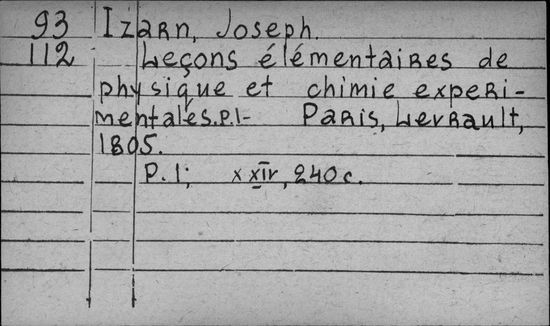 93 Izarn, Joseph.
112 Leçons élémentaires de
physique et chimie experi-
mentales. P.I- Paris, Levrault,
1805.
P. I; XXIV, 240 c.